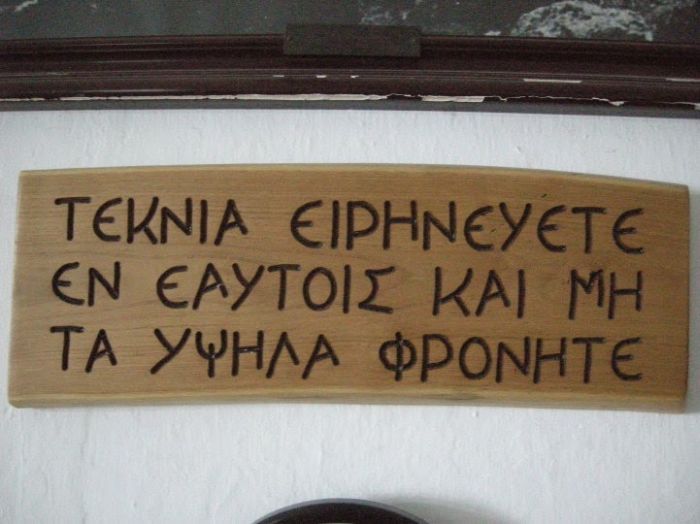 ΤΕΚΝΙΑ ΕΙΡΗΝΕΥΕΤΕ
ΕΝ ΕΑΥΤΟΙΣ ΚΑΙ ΜΗ
ΤΑ ΥΨΗΛΑ ΦΡΟΝΗΤΕ